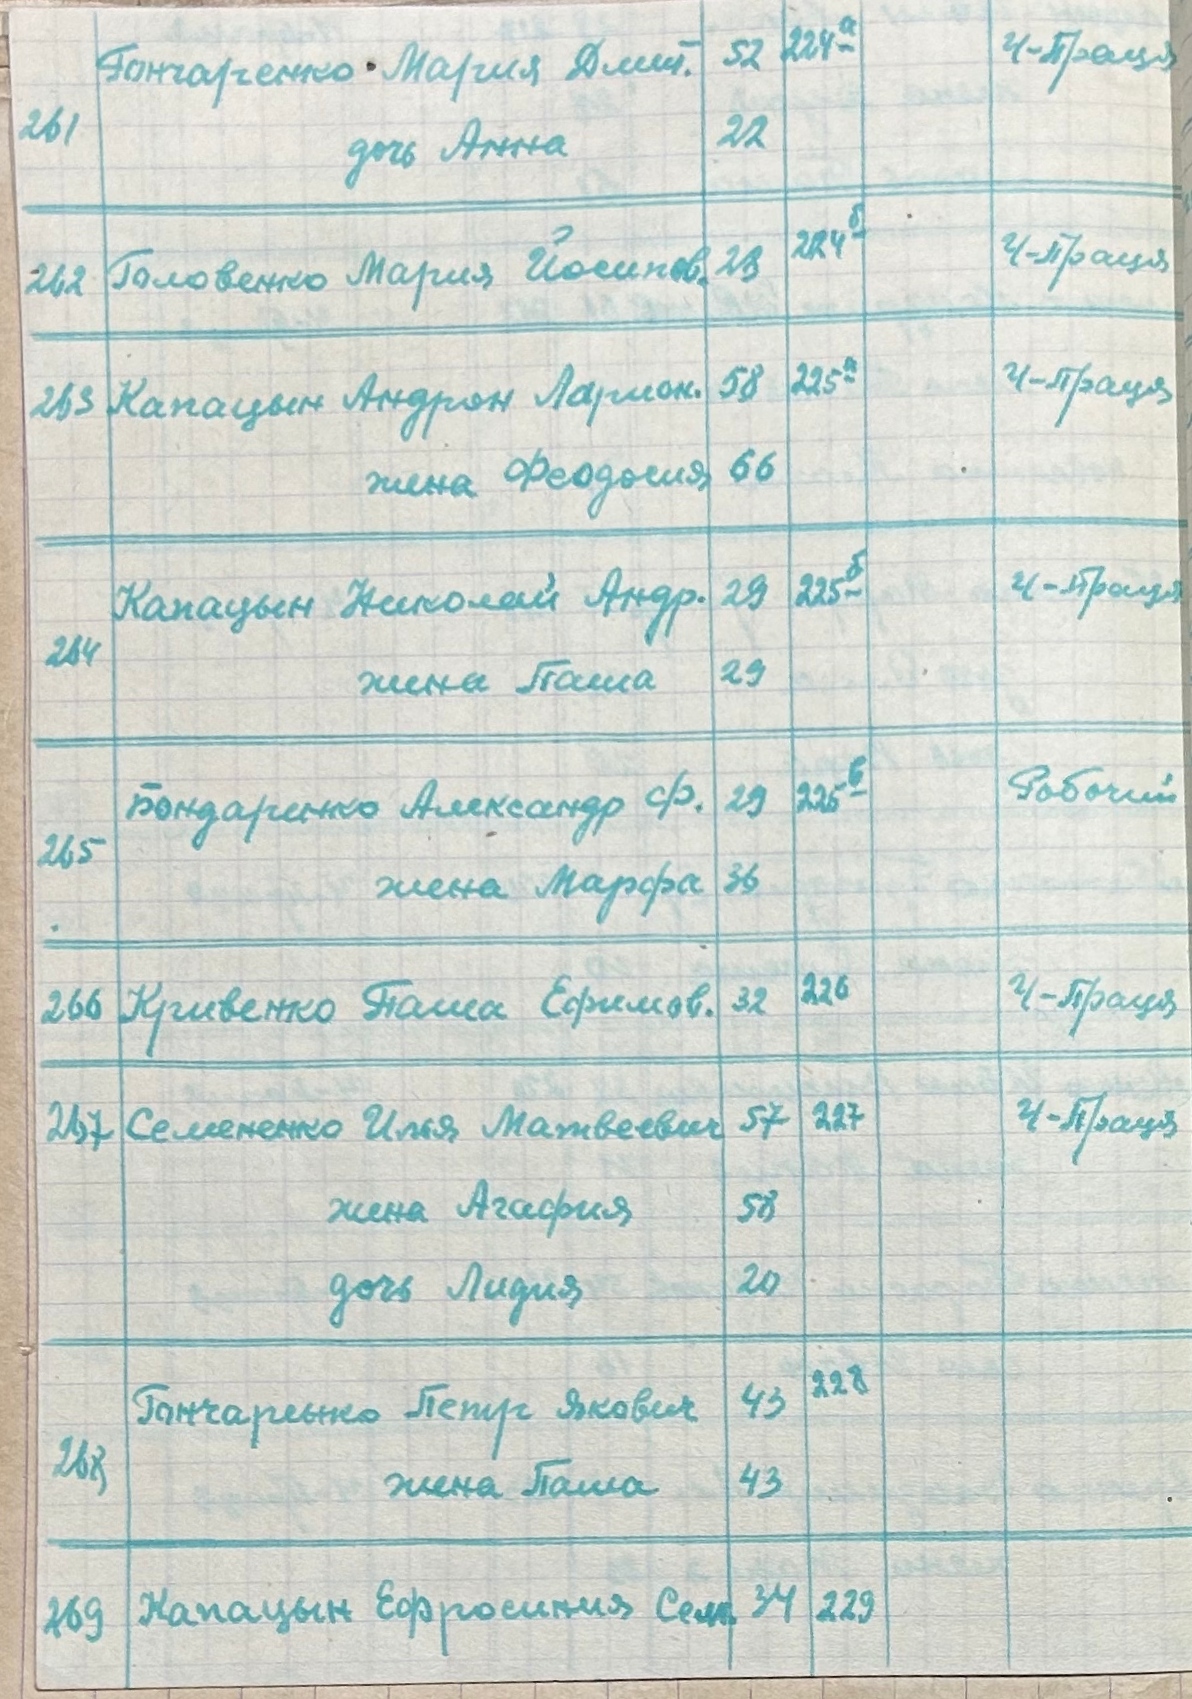 Гончаренко Мария Дмит. 52 224а Ч-Праця
261
дочь Анна 22
262 Головенко Мария Йосипов. 23 224б Ч-Праця
263 Капацын Андрон Ларион. 58 225а Ч-Праця
жена Феодосия 66
Капацын Николай Андр. 29 225б Ч-Праця
264
жена Паша 29
Бондаренко Александр Ф. 29 225в Робочий
265
жена Марфа 36
266 Кривенко Паша Ефимов. 32 226 Ч-Праця
267 Семененко Илья Матвеевич 57 227 Ч-Праця
жена Агафия 58
дочь Лидия 20
Гончаренко Петр Якович 43 228
268
жена Паша 43
269 Капацын Ефросиния Сем. 34 229